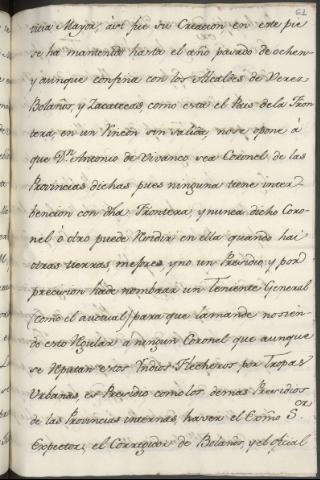 62
ticia Mayor; asi fue su Creacion en este pie
se ha mantenido hasta el año pasado de ochen-
y aunque confina con los Alcaldes de Veres
Bolaños, y Zacatecas, como esta el Pais dela Fron
tera, en un Rincon sin salida, no se opone à
que Dn. Antonio de Vivanco sea Coronel de las
Provincias dichas pues ninguna tiene inter-
bencion con dha Frontera, y nunca dicho Coro-
nel ò otro puede Residir en ella quando hai
otras tierras, mejores, y no un Presidio y por
precision hade nombrar un Teniente General
(como el auctual) para que lamande no sien-
do esto Regular à ningun Coronel que aunque
se Reputan estos Yndios Flecheros por Tropas
Urbanas, es Presidio como los demas Presidios
de las Provincias internas, haver el Exmo Sor
Expector, el Corregidor de Bolaños, y el Actual